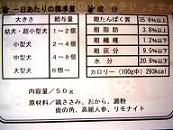 一日あたりの標準量
成分
大きさ 給与量
幼犬・超小型犬 1〜2個
小型犬 2〜4個
中型犬 4〜6個
大型犬 7〜8個
粗たんぱく質 35.6%以上
粗脂肪 3.8%以上
粗繊維 1.2%以下
粗灰分 9.5%以下
水分 30.0%以下
カロリー(100g中)293kcal
内容量/50g
原材料/鶏ささみ、おから、澱粉
鹿の角、高麗人参、リモナイト